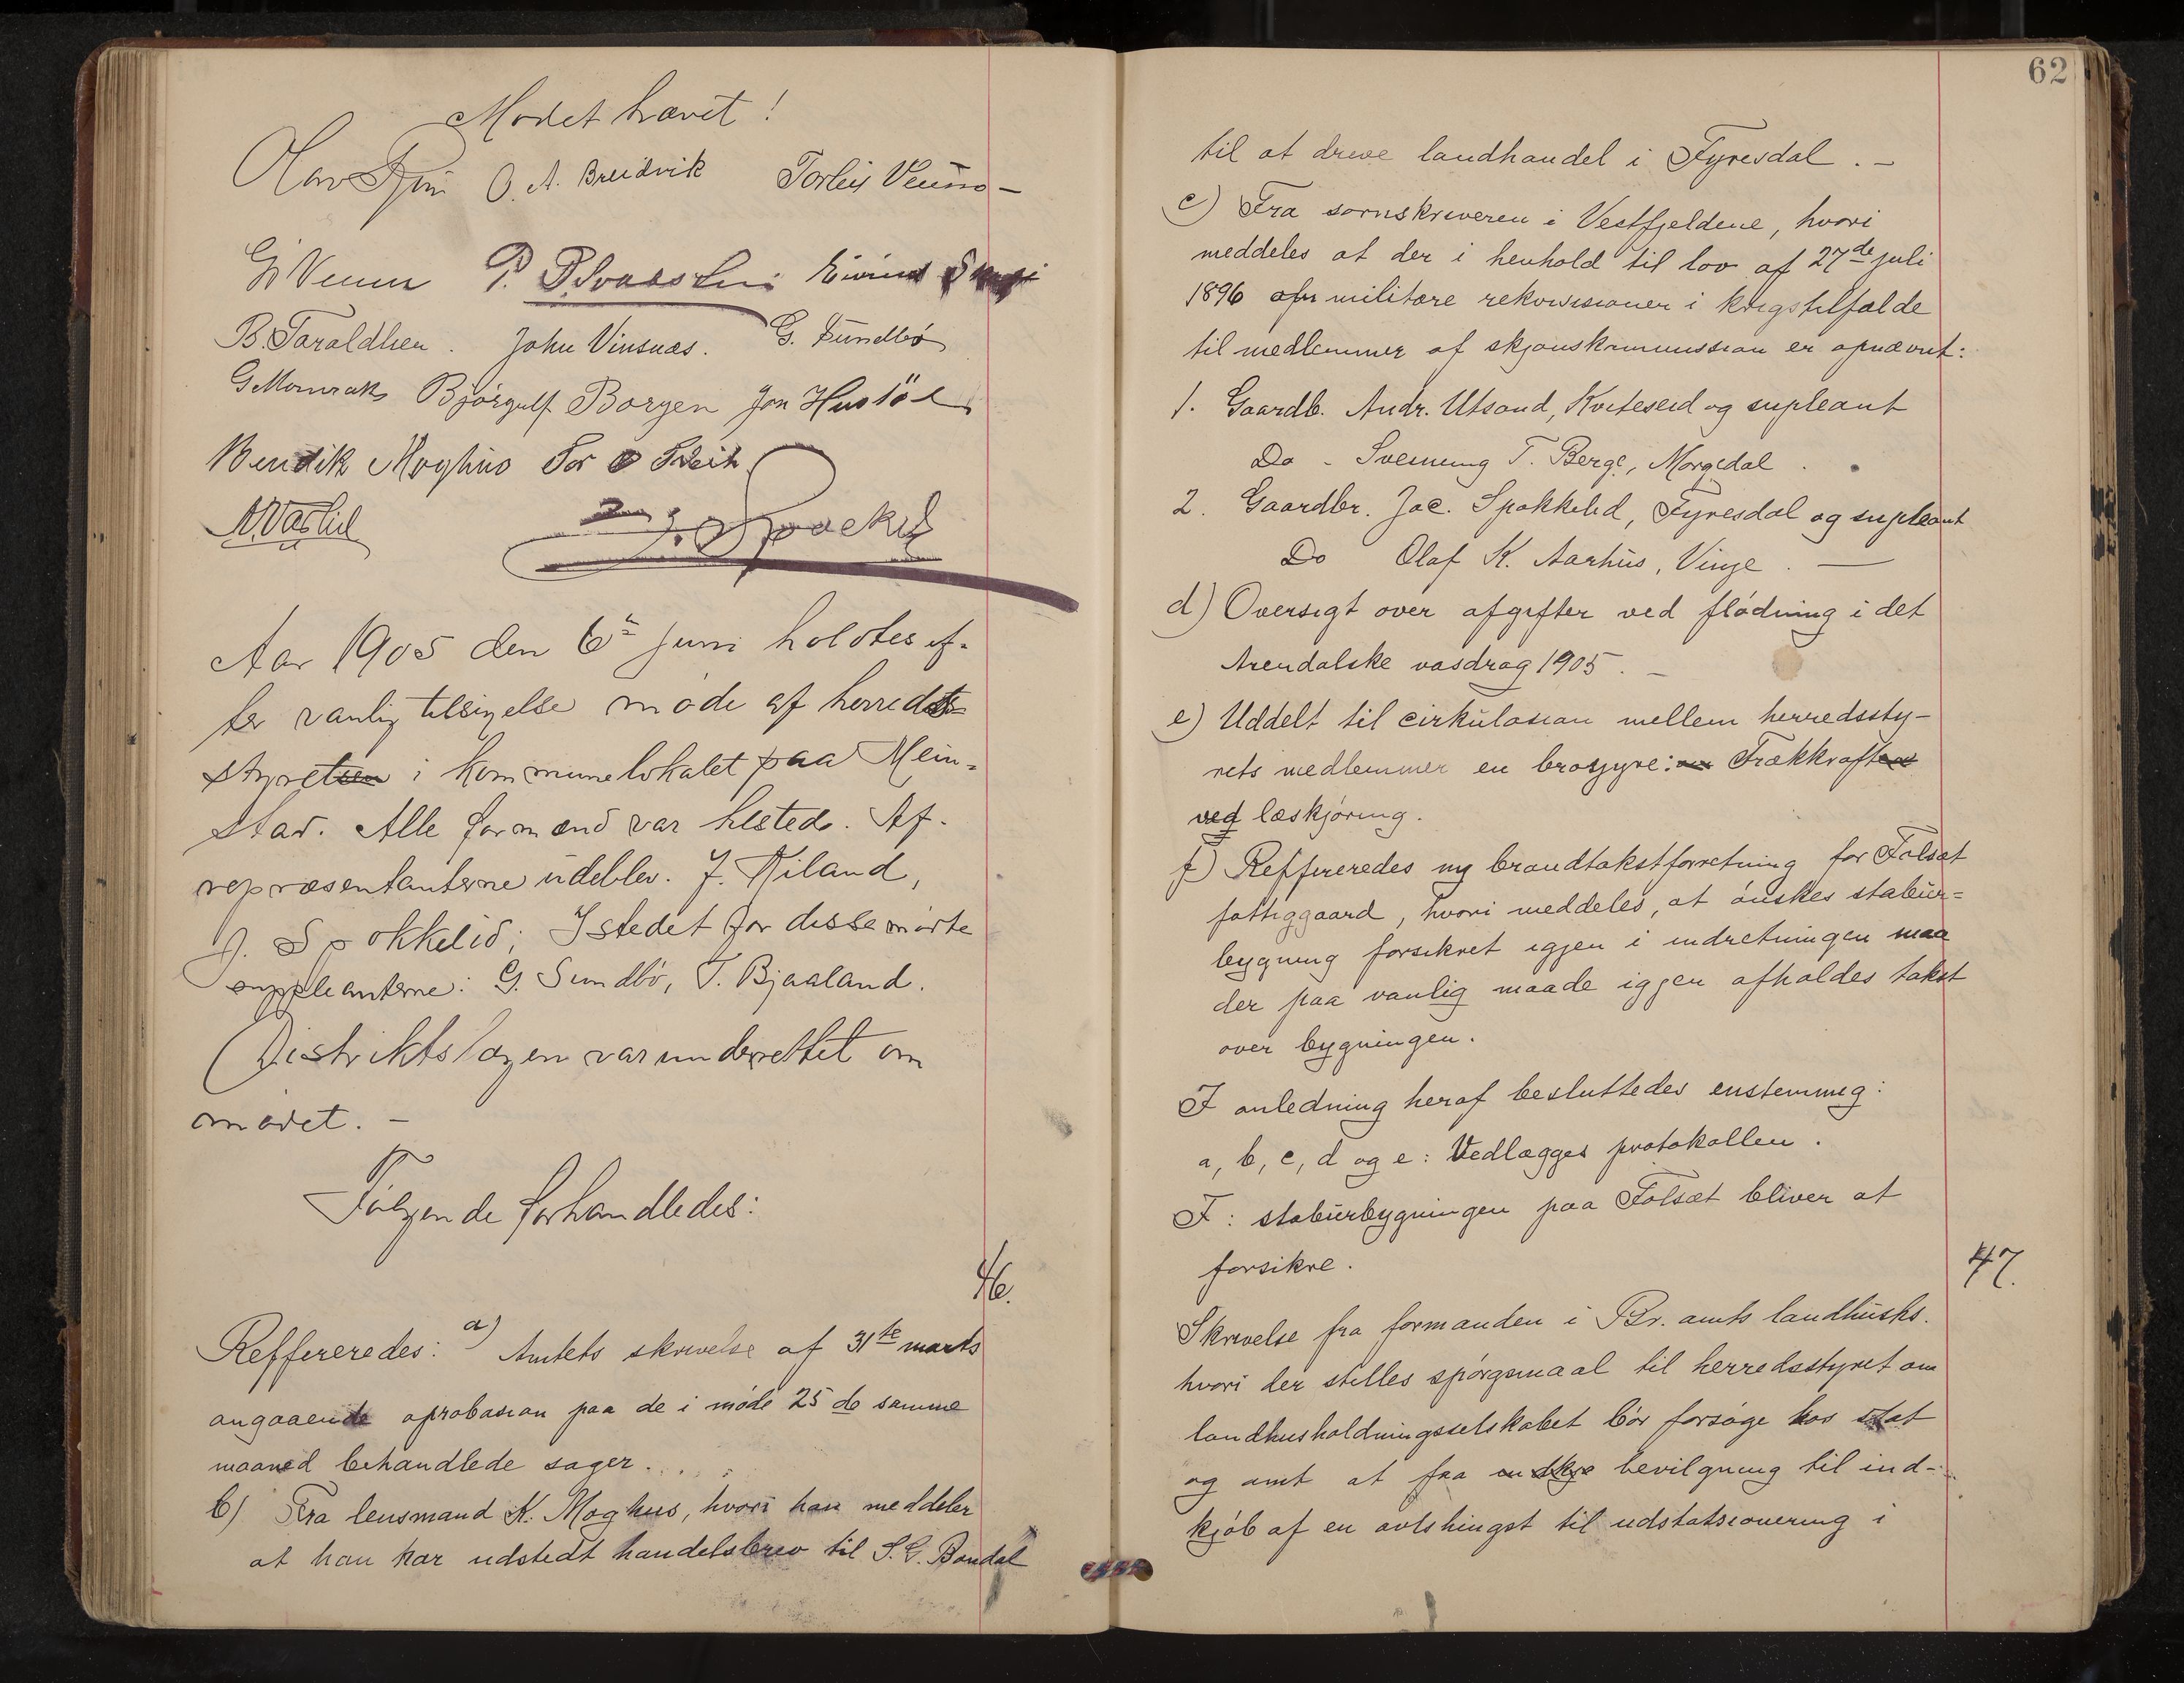 Mödet hævet!
O. A. Breidvik Torleif Veum
G Veum P. Eivind
B. Taraldlien. John Vinsnæs. G. Sundbö
G Momrak Björgulf Borgen Jon Hustöl
Bendik Moghus Tor
Aar 1905 den 6te juni holdtes ef-
ter vanlig tilsigelse möde af herreds-
styret i kommunelokalet paa Mein-
stad. Alle formænd var tilstede. Af-
repræsentanterne udeblev. J. Kiland,
J. Spokkelid; Istedet for disse mödte
suppleanterne: G. Sundbö, T. Bjaaland.
Distriktslægen var underrettet om
mödet. –
Fölgende forhandledes:
46.
Reffereredes: a) Amtets skrivelse af 31te marts
angaaende aprobasion paa de i möde 25de samme
maaned behandlede sager. . . .
b) Fra lensmand K. Moghus, hvori han meddeler
at han har udstedt handelsbrev til S. G. Bandal
62
til at dreve landhandel i Fyresdal. –
c) Fra sornskriveren i Vestfjeldene, hvori
meddeles at der i henhold til lov af 27de juli
1896 om militære rekvisisioner i krigstilfælde
til medlemmer af skjönskommission er opnævnt:
1. Gaardb. Andr. Utsond, Kviteseid og supleant
Do - Svenung T. Berge, Morgedal.
2. Gaardbr. Jac. Spokkelid, Fyresdal og supleant
Do Olaf K. Aarhus, Vinje. –
d) Oversigt over afgifter ved flödning i det
Arendalske vasdrag 1905. –
e) Uddelt til cirkulasion mellem herredssty-
rets medlemmer en brosjyre: Trækkraften
ved læskjöring.
f) Reffereredes ny brandtakstforretning for Folsæt
fattiggaard, hvori meddeles, at önskes stabur-
bygning forsikret igjen i indretningen maa
der paa vanlig maade igjen afholdes takst
over bygningen.
I anledning heraf besluttedes enstemmig:
a, b, c, d og e: Vedlægges protokollen.
F: stabürbygningen paa Folsæt bliver at
forsikre.
47.
Skrivelse fra formanden i Br. amts landhusks.
hvori der stilles spörgsmaal til herredsstyret om
landhusholdningsselskabet bör forsöge hos stat
og amt at faa bevilgning til ind-
kjöb af en avlshingst til udstatsionering i